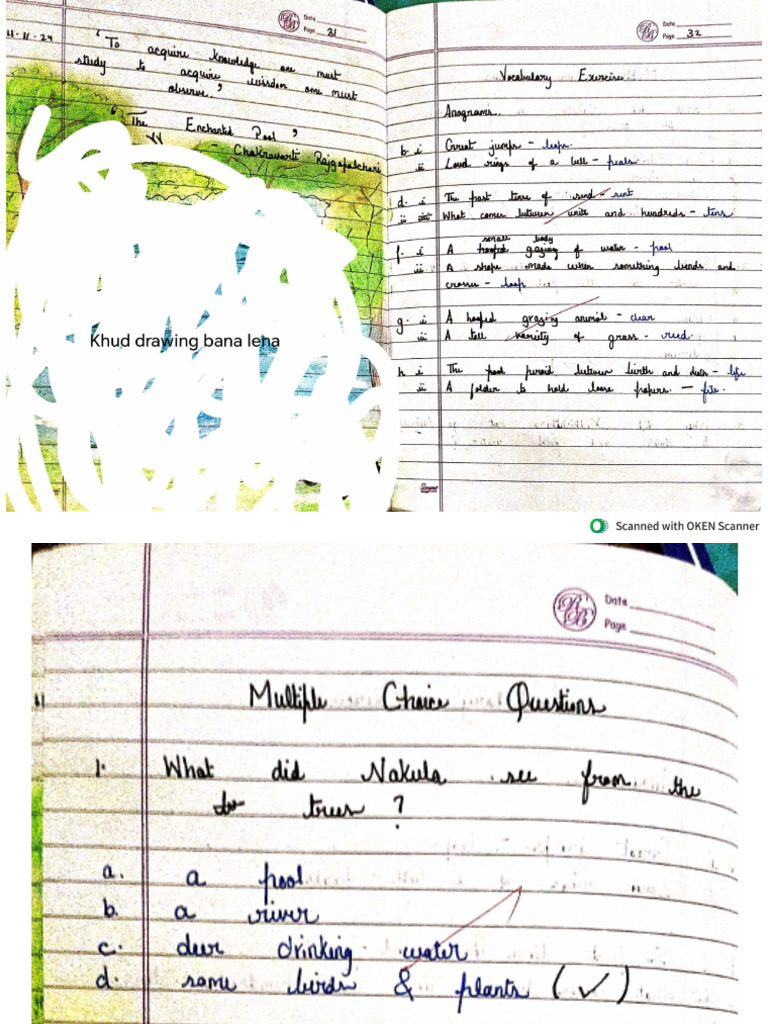 Date
Page 31
11.11.24
' To acquire knowledge one must
study to acquire wisdom one must
observe.'
" The Enchanted Pool '
- Chakravarti Rajgopalchari
Khud drawing bana lena
Date
Page 32
Vocabulary Exercise
Anagrams.
b. i Great jumps - leaps.
ii Loud rings of a bell - peals.
d. i The past tense of send - sent
ii What comes between units and hundreds - tens
small body
f. i A hoofed grazing of water - pool
ii A shape made when something bends and
crosses - loop
g. i A hoofed grazing animal - dear
ii A tall variety of grass - reed.
h i The peroid between birth and deth - life
ii A folder to hold loose papers. - file.
Scanned with OKEN Scanner
Date
Page
Multiple Choice Questions
1. What did Nakula see from the
trees ?
a. a pool
b. a river
c. deer drinking water
d. some birds & plants (✓)